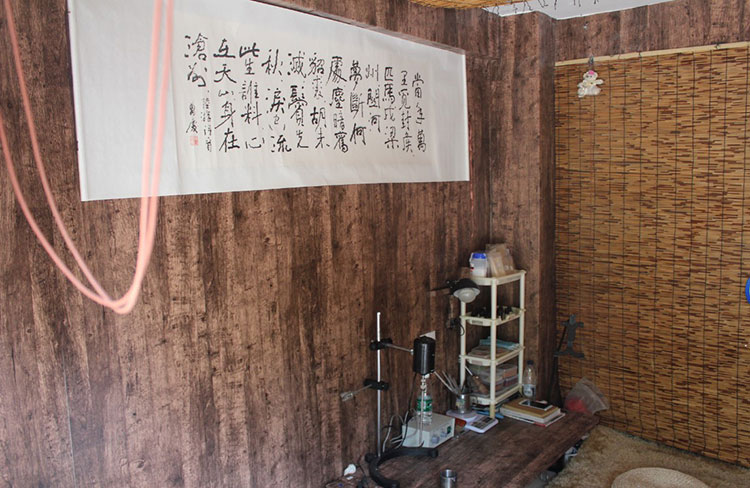 當年萬
里覓封侯
匹馬戍梁
州關河
夢斷何
處塵暗舊
貂裘胡未
滅鬢先
秋淚空流
此生誰料心
在天山身
滄洲